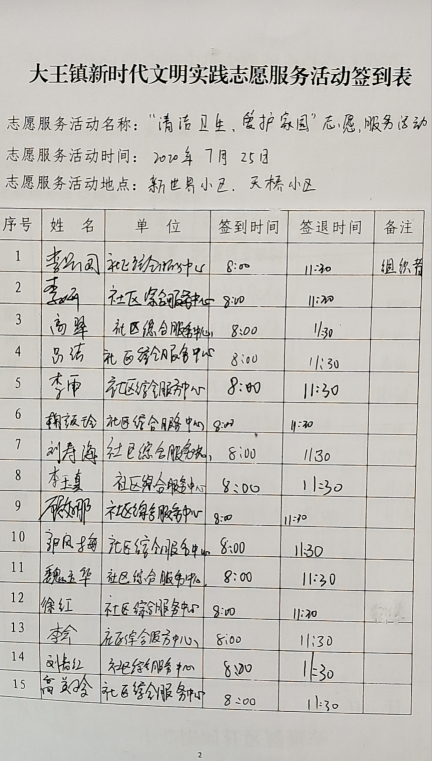 大王镇新时代文明实践志愿服务活动签到表
志愿服务活动名称：“清洁卫生、爱护家园”志愿服务活动
志愿服务活动时间： 2020年 7月 25日
志愿服务活动地点：新世界小区．天桥小区
序号 姓 名 单 位 签到时间 签退时间 备注
1 社区综合服务中心 8:00 11:30 组织者
2 李娟 社区综合服务中心 8:00 11:30
3 高翠 社区综合服务中心 8:00 11:30
4 吕洁 社区综合服务中心 8:00 11:30
5 李雨 社区综合服务中心 8:00 11:30
6 社区综合服务中心 8:00 11:30
7 刘寿海 社区综合服务中心 8:00 11:30
8 李玉真 社区综合服务中心 8:00 11:30
9 社区综合服务中心 8:00 11:30
10 郭凤梅 社区综合服务中心 8:00 11:30
11 魏玉华 社区综合服务中心 8:00 11:30
12 徐红 社区综合服务中心 8:00 11:30
13 李会 社区综合服务中心 8:00 11:30
14 社区综合服务中心 8:00 11:30
15 高美玲 社区综合服务中心 8:00 11:30
2